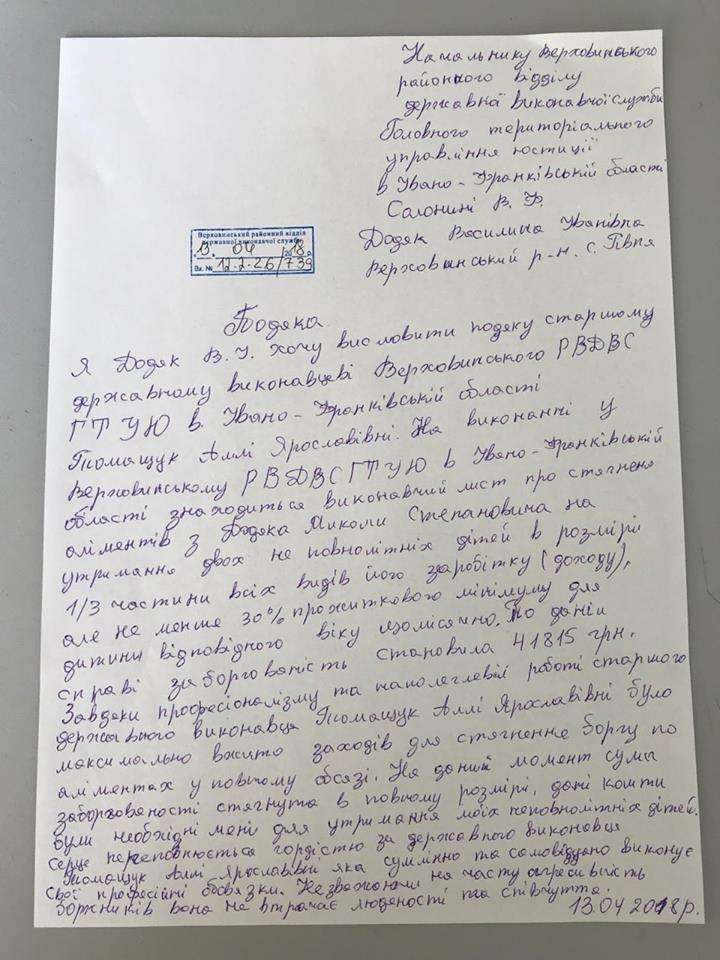 Начальнику Верховинського
районного відділу
державної виконавчої служби
Головного територіального
управління юстиції
в Івано-Франківській області
Салонині В. Ф.
Додяк Василина Іванівна
Верховинський р-н. с.
Верховинський районний відділ
державної виконавчої служби
13. 04 2018 р.
Вх. № 12.2-26/739
Подяка
Я Додяк В. І. хочу висловити подяку старшому
державному виконавцеві Верховинського РВДВС
ГТУЮ в Івано-Франківській області
Томащук Аллі Ярославівні. На виконанні у
Верховинському РВДВС ГТУЮ в Івано-Франківській
області знаходиться виконавчий лист про стягнення
аліментів з Додяка Миколи Степановича на
утримання двох не повнолітніх дітей в розмірі
1/3 частини всіх видів його заробітку (доходу),
але не менше 30% прожиткового мінімуму для
дитини відповідного віку щомісячно. По даній
справі заборгованість становила 41815 грн.
Завдяки професіоналізму та наполегливій роботі старшого
державного виконавця Томащук Аллі Ярославівні було
максимально вжито заходів для стягнення боргу по
аліментах у повному обсязі. На даний момент сума
заборгованості стягнута в повному розмірі, дані кошти
були необхідні мені для утримання моїх неповнолітніх дітей.
Серце переповнюється гордістю за державного виконавця
Томащук Аллі Ярославівній яка сумлінно та самовіддано виконує
свої професійні обовязки. Незважаючи на часту агресивність
боржників вона не втрачає людяності та співчуття.
13.04 2018 р.